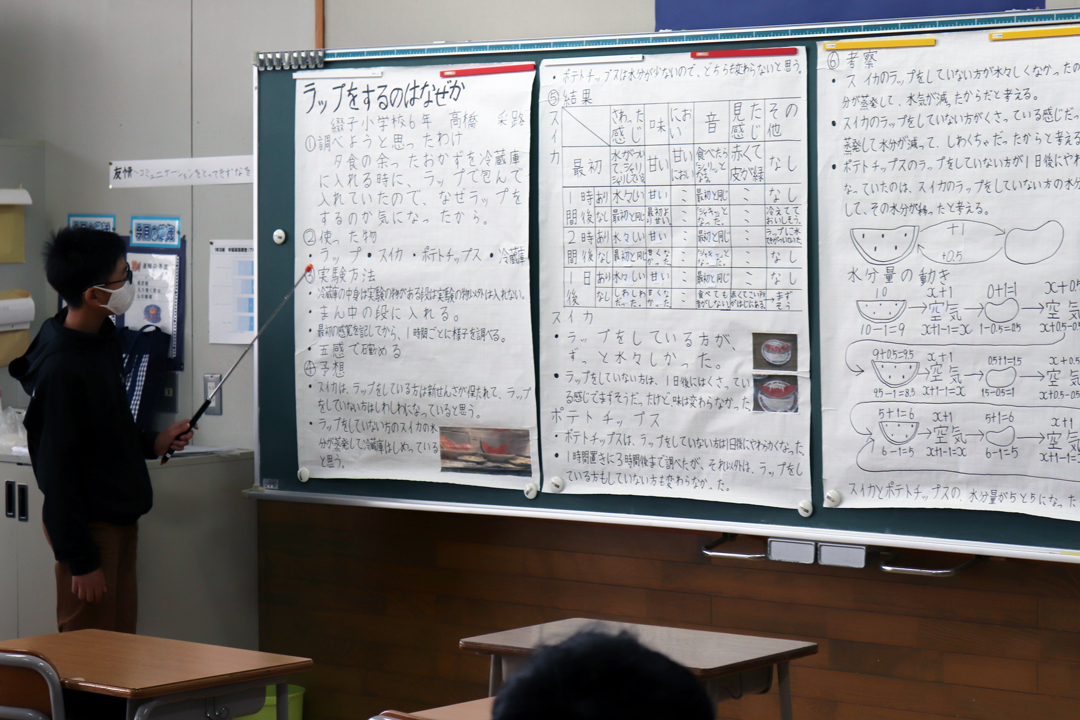 ラップをするのはなぜか
綴子小学校6年 高橋
①調べようと思ったわけ
夕食の余ったおかずを冷蔵庫
に入れる時に、ラップで包んで
入れていたので、なぜラップを
するのか気になったから。
②使った物
・ラップ・スイカ・ポテトチップス・冷蔵庫
③実験方法
・冷蔵庫の中身は実験の物がある段は実験の物以外は入れない。
・まん中の段に入れる。
・最初の感覚を記してから、1時間ごとに様子を調べる。
・五感で確める
④予想
・スイカは、ラップをしている方は新せんさが保たれて、ラップ
をしていない方はしわしわになっていると思う。
・ラップをしていない方のスイカの水
分が蒸発して冷蔵庫はしめっている
と思う。
・ポテトチップスは水分が少ないので、どちらも変わらないと思う。
⑤結果
スイカ
さわった感じ 味 におい 音 見た感じ その他
最初 甘い 甘いにおい 赤くて皮が緑 なし
1時間後 あり 水々しい 甘い 〃 最初と同じ 〃 なし
なし 最初と同じ
2時間後 あり 水々しい 甘い 〃 最初と同じ 〃
なし 最初と同じ なし
1日後 あり 水々しい 甘い 〃 最初と同じ 〃 なし
なし
スイカ
・ラップをしている方が、
ずっと水々しかった。
・ラップをしていない方は、1日後にはくさってい
る感じでまずそうだ。だけど味は変わらなかった
ポテトチップス
・ポテトチップスは、ラップをしていない方は1日後にやわらかくなった。
・1時間置きに3時間後まで調べたが、それ以外は、ラップをし
ている方もしていない方も変わらなかった。
⑥考察
・スイカのラップをしていない方が水々しくなかったの
分が蒸発して、水気が減ったからだと考える。
・スイカのラップをしていない方がくさっている感じだっ
蒸発して水分が減って、しわくちゃだったからと考える
・ポテトチップスのラップをしていない方が1日後にやわ
なっていたのは、スイカのラップをしていない方の水分
して、その水分が移ったと考える。
+1
+0.5
水分量の動き
10 x+1 0+1=1 x+0.5
空気 空気
10-1=9 x+1-1=x 1-0.5=0.5
9+0.5=9.5 x+1 0.5+1=1.5
空気 空気
9.5-1=8.5 x+1-1=x
5+1=6 x+1 5+1=6 x+1
空気 空気
6-1=5 x+1-1=x 6-1=5
スイカとポテトチップスの、水分量が5と5になった